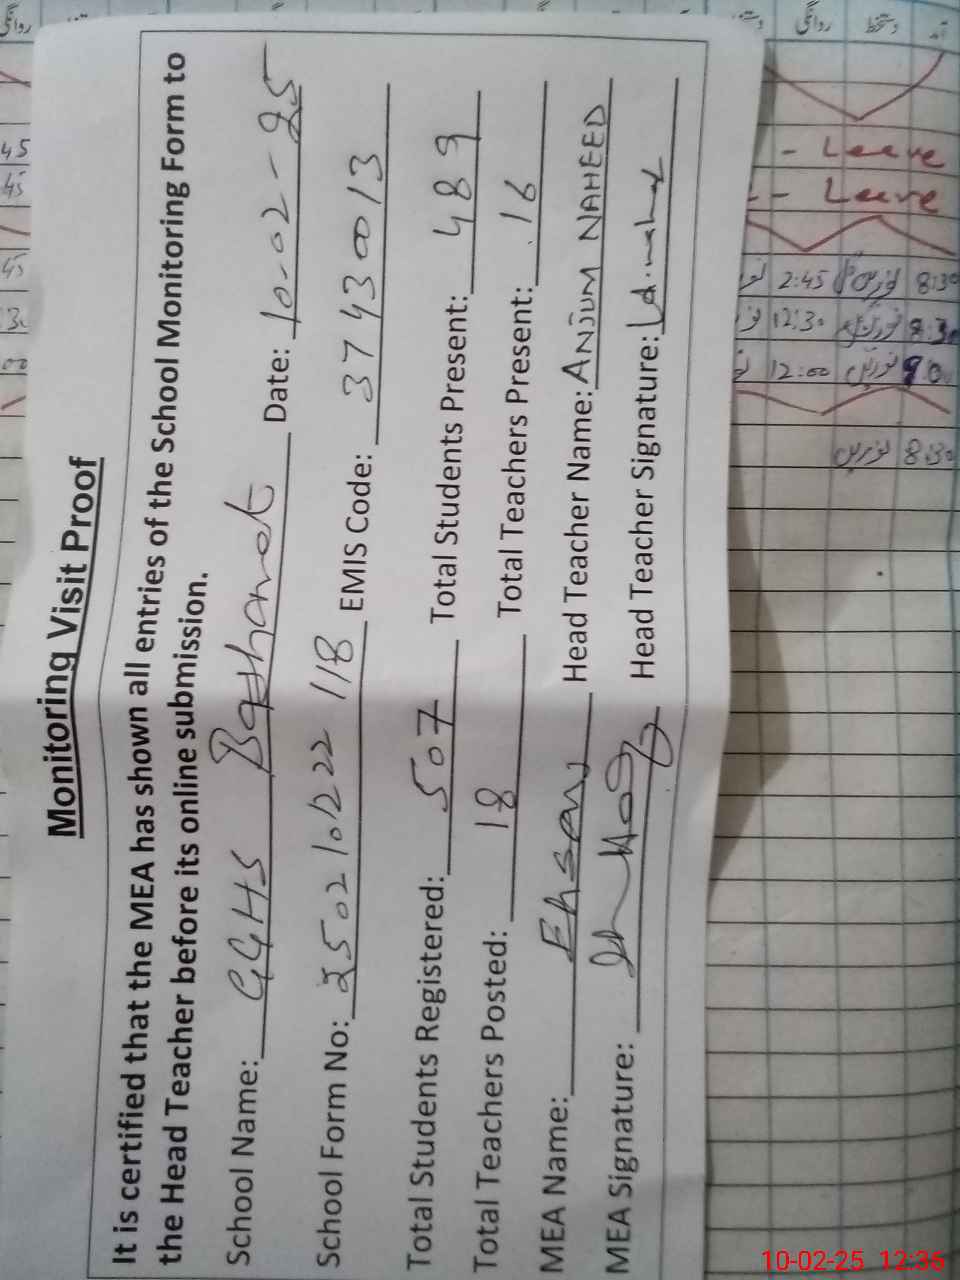 Monitoring Visit Proof
It is certified that the MEA has shown all entries of the School Monitoring Form to
the Head Teacher before its online submission.
School Name: GGHS Date: 10-02-25
School Form No: 2502101222 118 EMIS Code: 37430013
Total Students Registered: 507 Total Students Present: 489
Total Teachers Posted: 18 Total Teachers Present: 16
MEA Name: Ehsan Head Teacher Name: ANJUM NAHEED
MEA Signature: Head Teacher Signature:
روانگی دستخط آمد
- Leave
- Leave
8:30 نورین 2:45
8:30 نورین 12:30
نورین 12:00
8:30 نورین
10-02-25 12:36